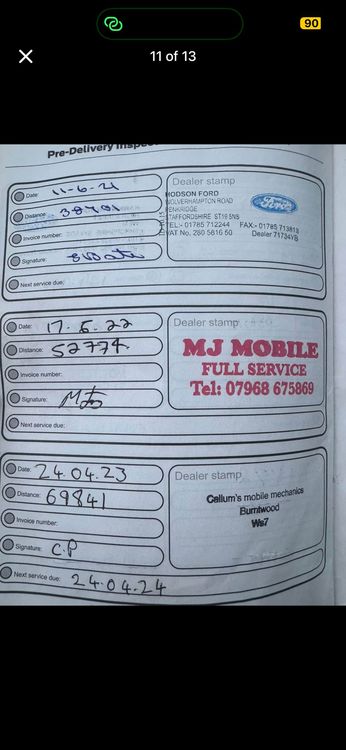 90
11 of 13
Pre-Delivery
Date: 11-6-21
Distance:
Invoice number:
Signature:
Next service due:
Dealer stamp
HODSON FORD
WOLVERHAMPTON ROAD
PENKRIDGE
STAFFORDSHIRE ST19 5NS
TEL:- 01785 712244 FAX:- 01785 713813
VAT No. 280 5616 50 Dealer 71734YB
Ford
Date: 17.5.22
Distance: 52774
Invoice number:
Signature:
Next service due:
Dealer stamp
MJ MOBILE
FULL SERVICE
Tel: 07968 675869
Date: 24.04.23
Distance: 69841
Invoice number:
Signature: C.P
Next service due: 24.04.24
Dealer stamp
Callum's mobile mechanics
Burntwood
Ws7